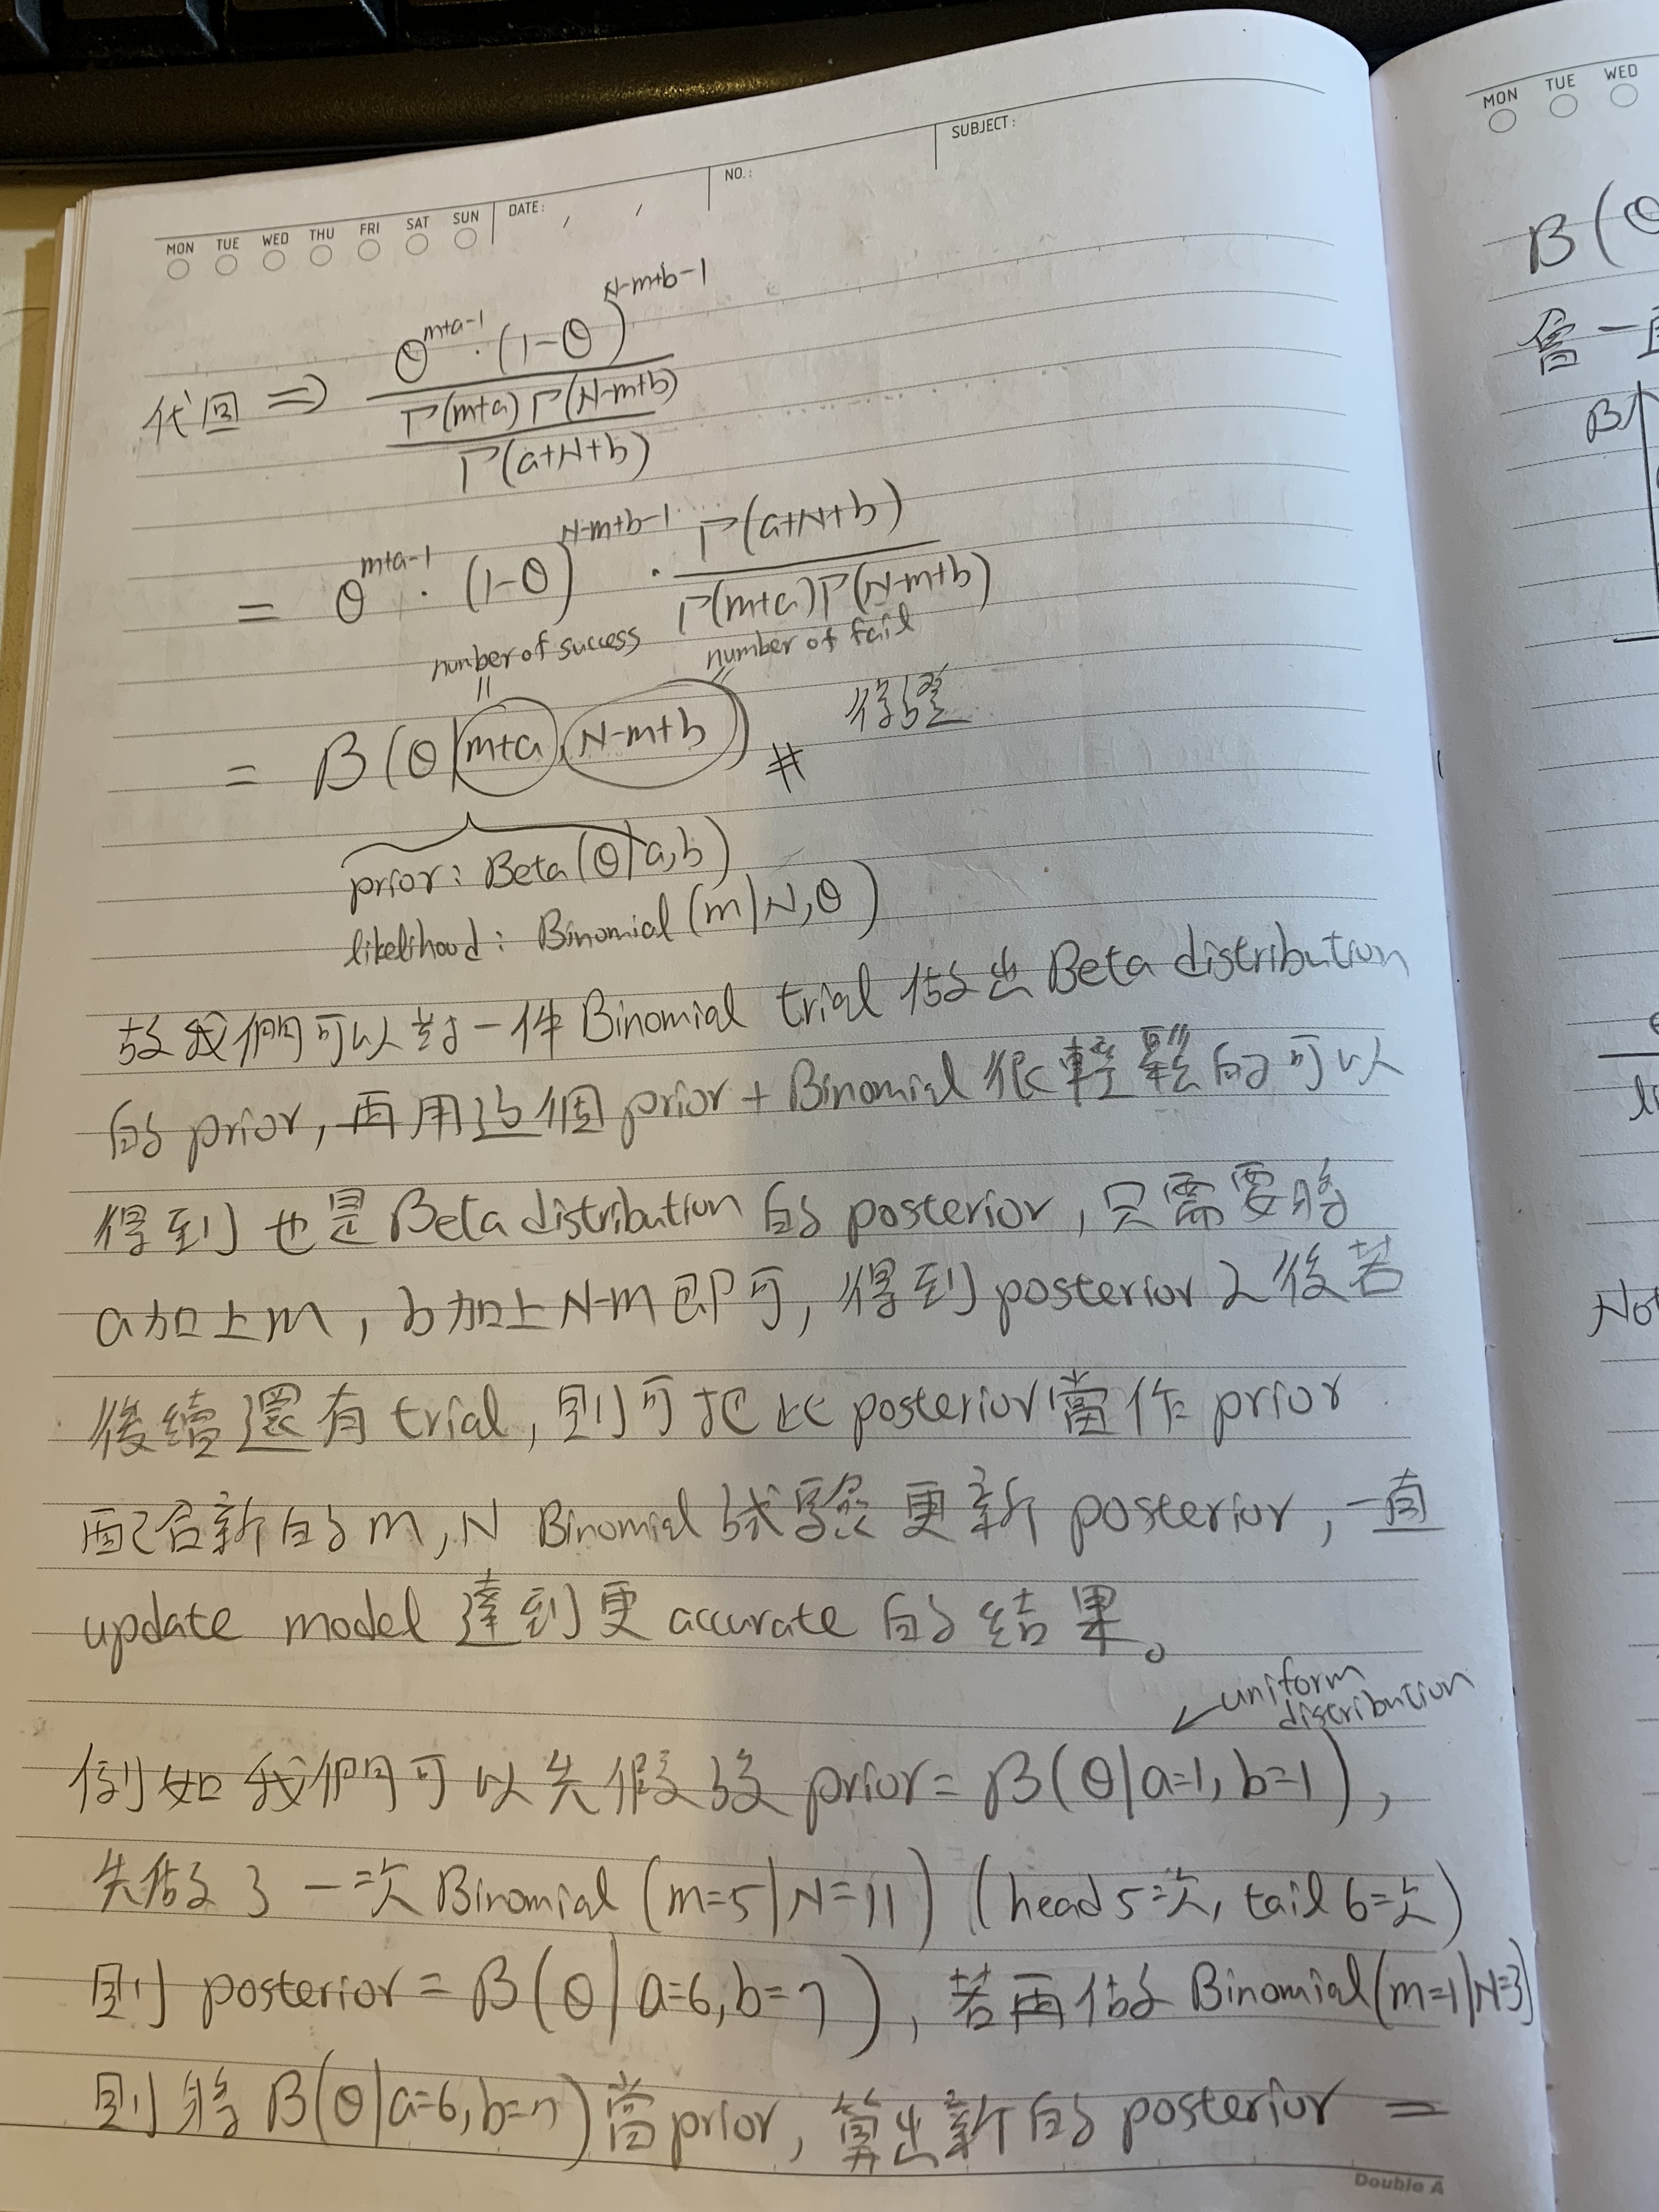 MON TUE WED THU FRI SAT SUN DATE: / / NO.: SUBJECT:
代回 ⇒ θ^(m+a-1) · (1-θ)^(N-m+b-1) / (Γ(m+a)Γ(N-m+b) / Γ(a+N+b))
= θ^(m+a-1) · (1-θ)^(N-m+b-1) · Γ(a+N+b) / (Γ(m+a)Γ(N-m+b))
number of success number of fail
= B(θ|m+a, N-m+b) # 得證
prior: Beta(θ|a,b)
likelihood: Binomial(m|N,θ)
故我們可以對一件Binomial trial 做出Beta distribution
的prior,再用這個prior+Binomial很輕鬆的可以
得到也是Beta distribution的posterior,只需要將
a加上m,b加上N-m即可,得到posterior之後若
後續還有trial,則可把此posterior當作prior
配合新的m,N Binomial試驗更新posterior,一直
update model 達到更accurate的結果。
uniform
distribution
例如我們可以先假設prior=B(θ|a=1,b=1),
先做了一次Binomial(m=5|N=11)(head5次,tail6次)
則posterior=B(θ|a=6,b=7),若再做Binomial(m=1|N=3)
則將B(θ|a=6,b=7)當prior,算出新的posterior=
Double A
MON TUE WED
B(θ
會一直
B
Not